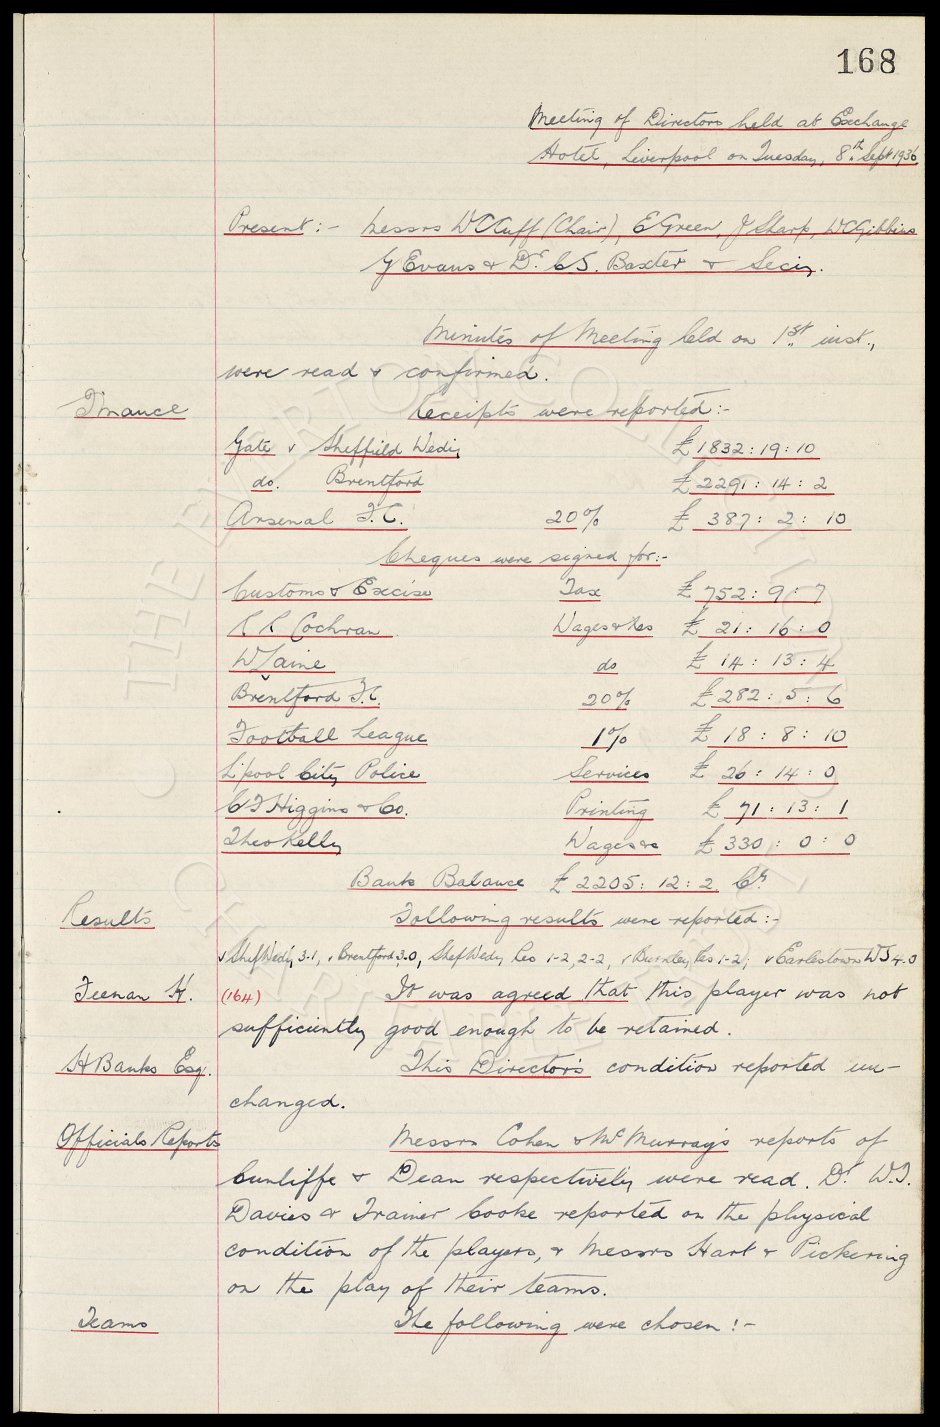 168
Meeting of Directors held at Exchange
Hotel, Liverpool on Tuesday, 8th Sept 1936
Present :- Messrs W C Cuff (Chair), E Green, J Sharp, W C Gibbins
G Evans & Dr. C S. Baxter & Secy.
Minutes of Meeting held on 1st inst.,
were read & confirmed.
Finance Receipts were reported :-
Gate v Sheffield Wedy £1832 : 19 : 10
do. Brentford £2291 : 14 : 2
Arsenal F.C. 20% £ 387 : 2 : 10
Cheques were signed for :-
Customs & Excise Tax £ 752 : 9 : 7
Cochran Wages & £ 21 : 16 : 0
W Laine do £ 14 : 13 : 4
Brentford F.C. 20% £ 282 : 5 : 6
Football League 1% £ 18 : 8 : 10
L'pool City Police Services £ 26 : 14 : 0
C F Higgins & Co. Printing £ 71 : 13 : 1
Theo Kelly Wages &c £ 330 : 0 : 0
Bank Balance £ 2205 : 12 : 2 Cr
Results Following results were reported :-
v Shef Wedy 3-1, v Brentford 3.0, Shef Wedy Res 1-2, 2-2, v Burnley Res 1-2; v Earlestown WJ 4.0
Feenan K. (164) It was agreed that this player was not
sufficiently good enough to be retained.
H Banks Esq. This Director's condition reported un-
changed.
Officials Reports Messrs Cohen & McMurray's reports of
Cunliffe & Dean respectively were read. Dr. W.J.
Davies & Trainer Cooke reported on the physical
condition of the players, & Messrs Hart & Pickering
on the play of their teams.
Teams The following were chosen :-
© THE EVERTON COLLECTION
CHARITABLE